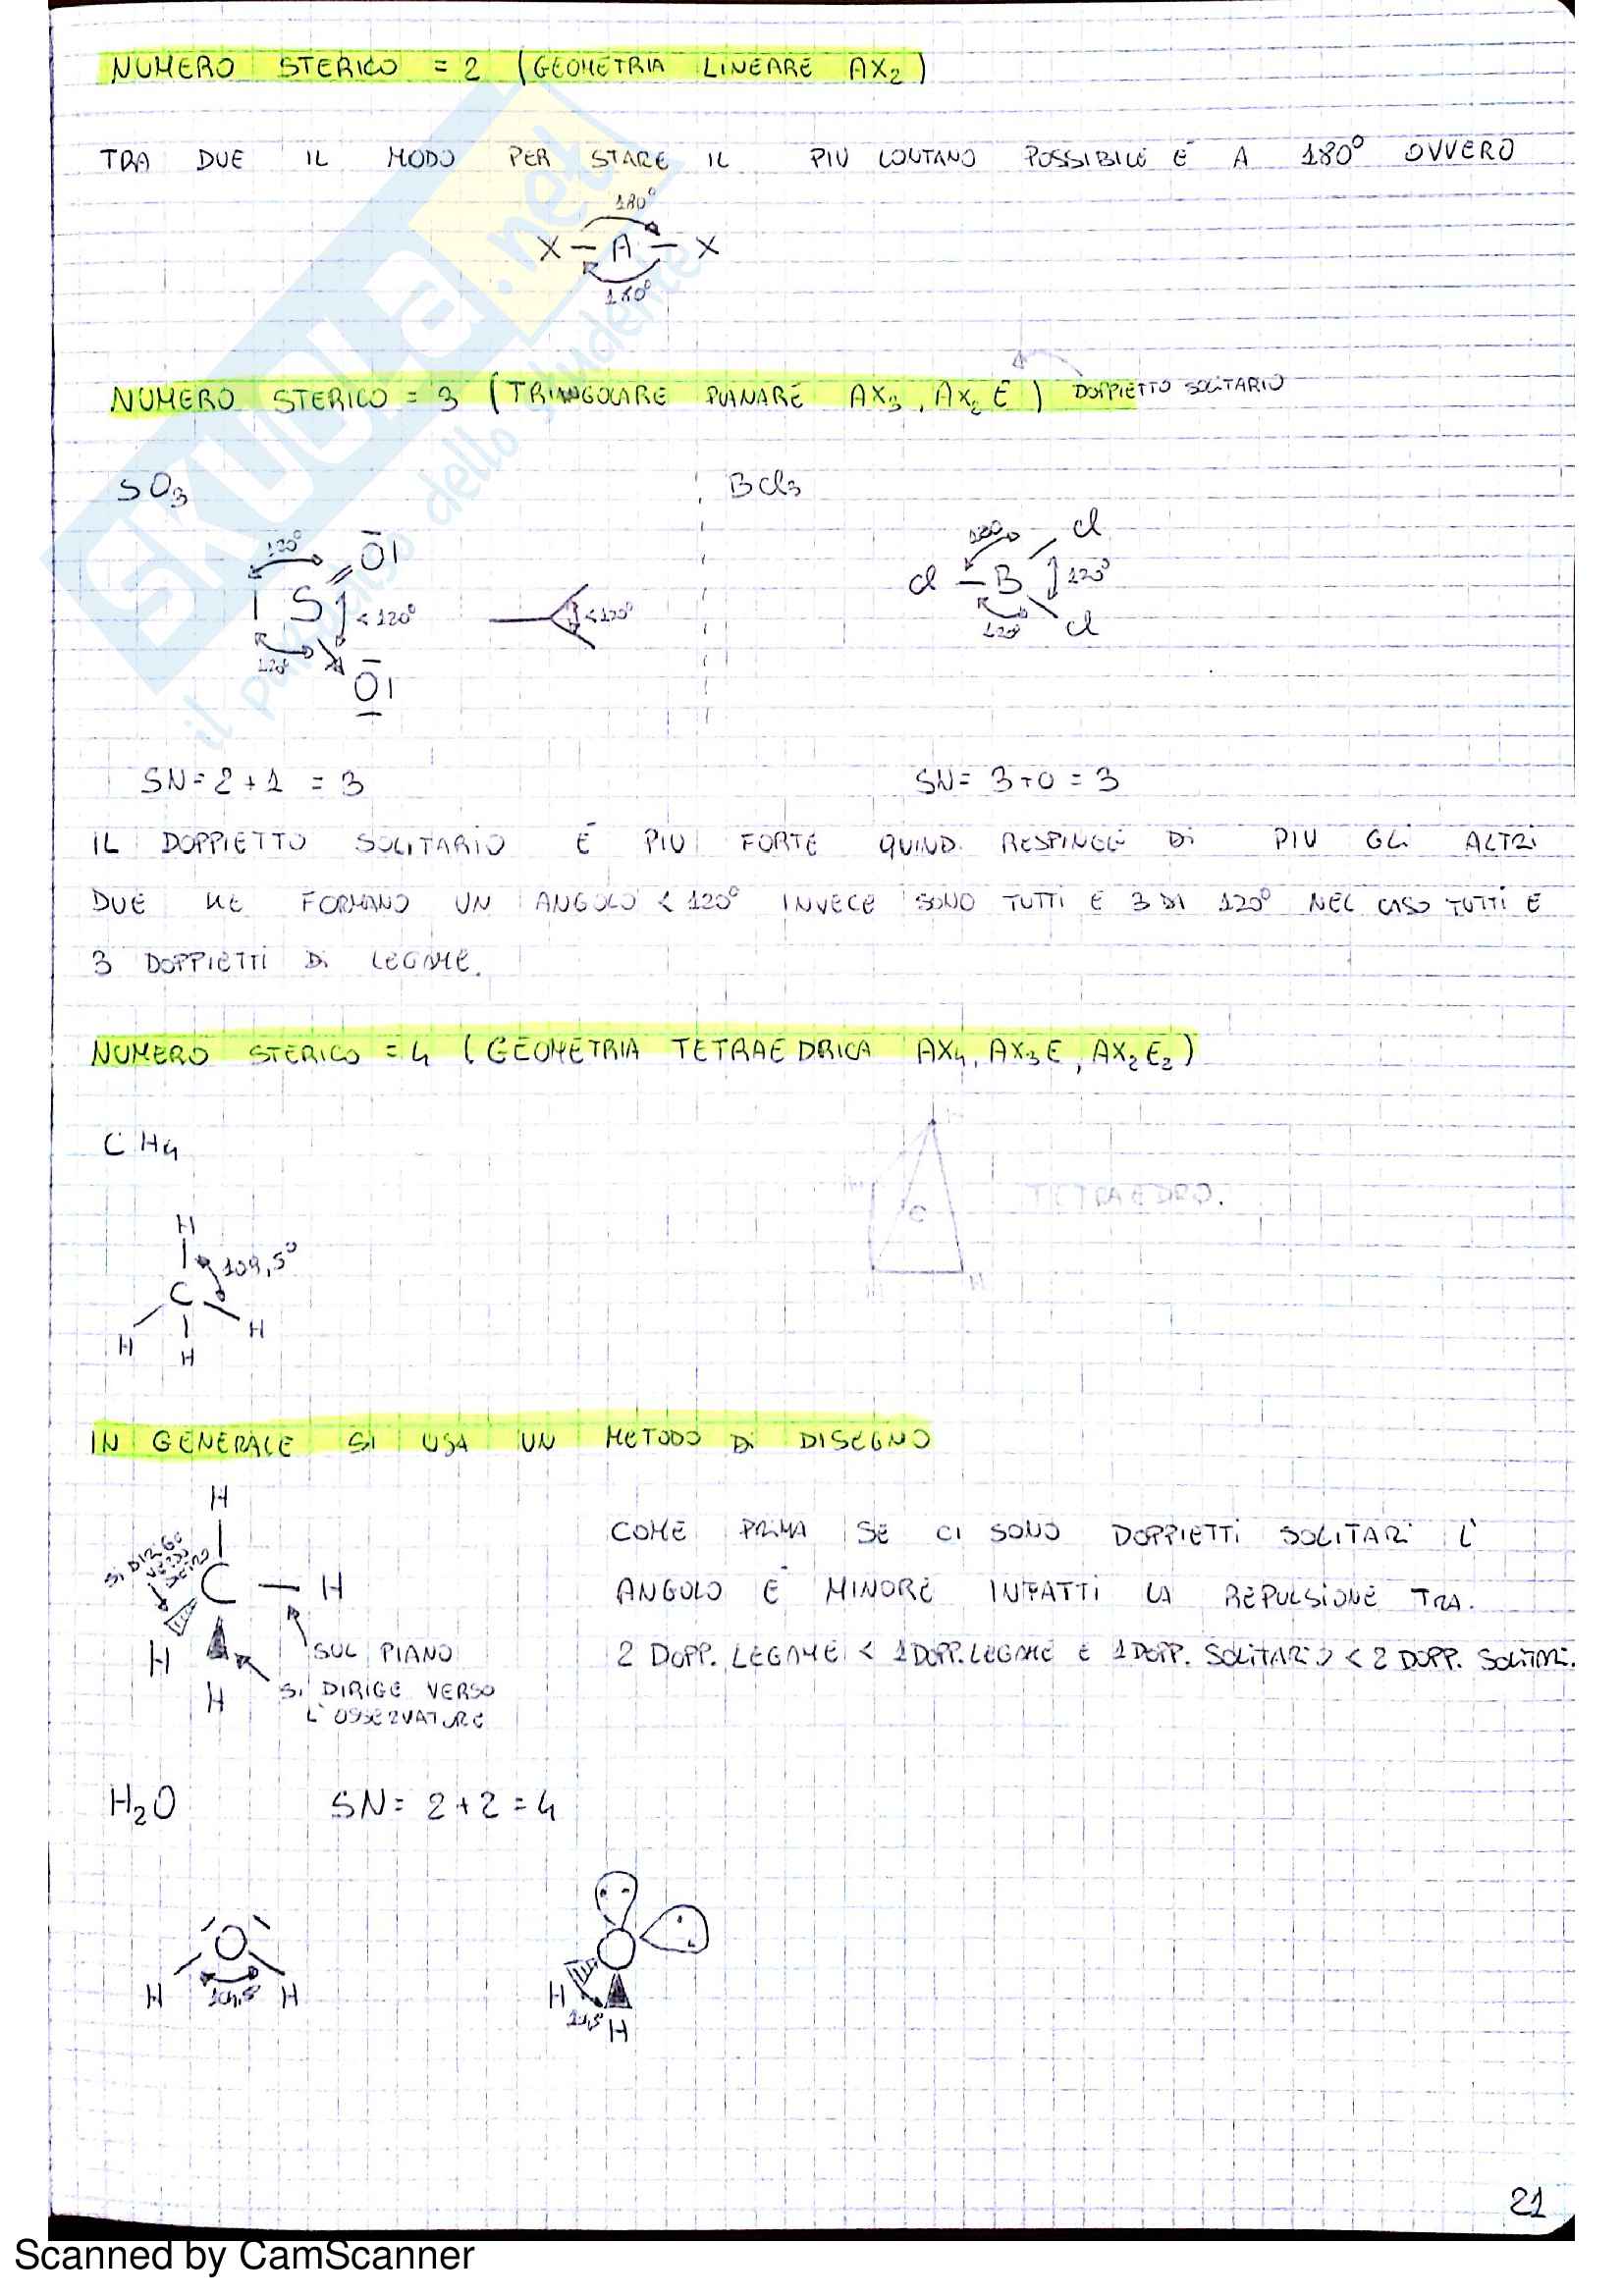 NUMERO STERICO = 2 (GEOMETRIA LINEARE AX₂)
TRA DUE IL MODO PER STARE IL PIU LONTANO POSSIBILE E A 180° OVVERO
180°
X – A – X
180°
NUMERO STERICO = 3 (TRIANGOLARE PLANARE AX₃, AX₂E) DOPPIETTO SOLITARIO
SO₃ BCl₃
120° O
S <120° <120°
120°
O
120° Cl
Cl – B 120°
120° Cl
SN = 2 + 1 = 3 SN = 3 + 0 = 3
IL DOPPIETTO SOLITARIO E PIU FORTE QUIND. RESPINGE Di PIU GLi ALTRi
DUE KE FORMANO UN ANGOLO < 120° INVECE SONO TUTTI E 3 DI 120° NEL CASO TUTTI E
3 DOPPIETTI Di LEGAME.
NUMERO STERICO = 4 (GEOMETRIA TETRAEDRICA AX₄, AX₃E, AX₂E₂)
CH₄
TETRAEDRO.
C
H
H
109,5°
C
H H
H
IN GENERALE SI USA UN METODO Di DISEGNO
H
SI DIRIGE VERSO DIETRO
C – H
H
SUL PIANO
H
Si DIRIGE VERSO
L'OSSERVATORE
COME PRIMA SE CI SONO DOPPIETTI SOLITARI L'
ANGOLO E MINORE INFATTI LA REPULSIONE TRA.
2 DOPP. LEGAME < 1 DOPP. LEGAME E 1 DOPP. SOLITARIO < 2 DOPP. SOLITARI.
H₂O SN = 2 + 2 = 4
O
H 104,5 H
O
H
H
21
Scanned by CamScanner
SKUOLA.net
il paradiso dello studente